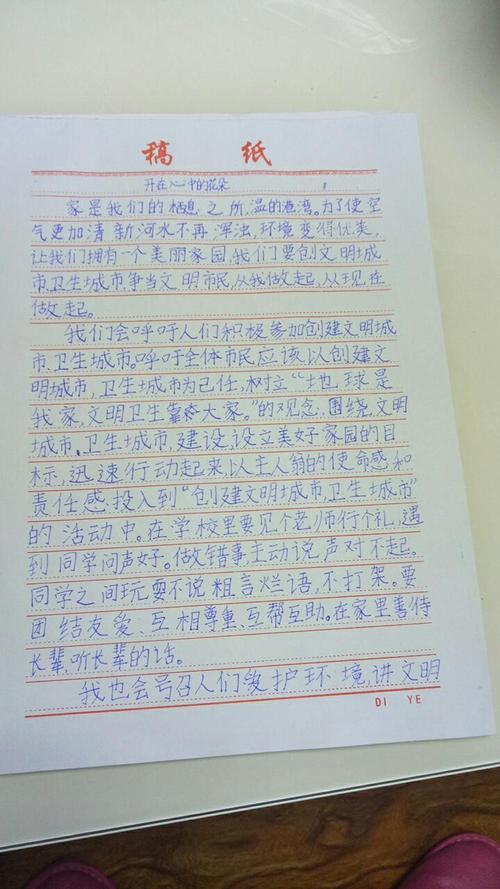 稿 纸
开在心中的花朵
家是我们的栖息之所,温的港湾。为了使空
气更加清新河水不再浑浊,环境变得优美,
让我们拥有一个美丽家园,我们要创文明城
市、卫生城市,争当文明市民,从我做起,从现在
做起。
我们会呼吁人们积极参加创建文明城
市、卫生城市。呼吁全体市民应该以创建文
明城市,卫生城市为己任,树立“地球是
我家,文明卫生靠大家。”的观念,围绕文明
城市、卫生城市,建设,设立美好家园的目
标,迅速行动起来,以主人翁的使命感和
责任感,投入到“创建文明城市,卫生城市”
的活动中。在学校里要见个老师行个礼,遇
到同学问声好。做错事,主动说声对不起。
同学之间玩耍不说粗言烂语,不打架。要
团结友爱、互相尊重、互帮互助。在家里善待
长辈,听长辈的话。
我也会号召人们爱护环境,讲文明
DI YE